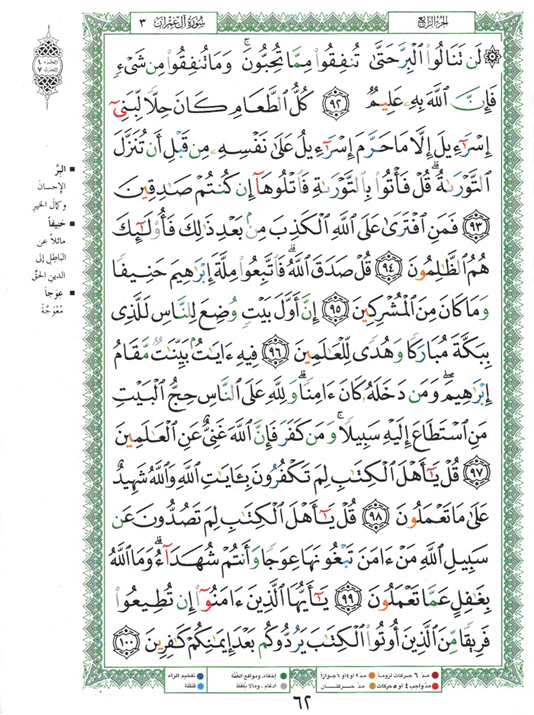 الجزء الرابع
سورة آل عمران
٣
لَن تَنَالُوا۟ ٱلْبِرَّ حَتَّىٰ تُنفِقُوا۟ مِمَّا تُحِبُّونَ ۚ وَمَا تُنفِقُوا۟ مِن شَىْءٍ
فَإِنَّ ٱللَّهَ بِهِۦ عَلِيمٌ ٩٢ كُلُّ ٱلطَّعَامِ كَانَ حِلًّا لِّبَنِىٓ
إِسْرَٰٓءِيلَ إِلَّا مَا حَرَّمَ إِسْرَٰٓءِيلُ عَلَىٰ نَفْسِهِۦ مِن قَبْلِ أَن تُنَزَّلَ
ٱلتَّوْرَىٰةُ ۗ قُلْ فَأْتُوا۟ بِٱلتَّوْرَىٰةِ فَٱتْلُوهَآ إِن كُنتُمْ صَـٰدِقِينَ
٩٣ فَمَنِ ٱفْتَرَىٰ عَلَى ٱللَّهِ ٱلْكَذِبَ مِنۢ بَعْدِ ذَٰلِكَ فَأُو۟لَـٰٓئِكَ
هُمُ ٱلظَّـٰلِمُونَ ٩٤ قُلْ صَدَقَ ٱللَّهُ ۗ فَٱتَّبِعُوا۟ مِلَّةَ إِبْرَٰهِيمَ حَنِيفًا
وَمَا كَانَ مِنَ ٱلْمُشْرِكِينَ ٩٥ إِنَّ أَوَّلَ بَيْتٍ وُضِعَ لِلنَّاسِ لَلَّذِى
بِبَكَّةَ مُبَارَكًا وَهُدًى لِّلْعَـٰلَمِينَ ٩٦ فِيهِ ءَايَـٰتٌۢ بَيِّنَـٰتٌ مَّقَامُ
إِبْرَٰهِيمَ ۖ وَمَن دَخَلَهُۥ كَانَ ءَامِنًا ۗ وَلِلَّهِ عَلَى ٱلنَّاسِ حِجُّ ٱلْبَيْتِ
مَنِ ٱسْتَطَاعَ إِلَيْهِ سَبِيلًا ۚ وَمَن كَفَرَ فَإِنَّ ٱللَّهَ غَنِىٌّ عَنِ ٱلْعَـٰلَمِينَ
٩٧ قُلْ يَـٰٓأَهْلَ ٱلْكِتَـٰبِ لِمَ تَكْفُرُونَ بِـَٔايَـٰتِ ٱللَّهِ وَٱللَّهُ شَهِيدٌ
عَلَىٰ مَا تَعْمَلُونَ ٩٨ قُلْ يَـٰٓأَهْلَ ٱلْكِتَـٰبِ لِمَ تَصُدُّونَ عَن
سَبِيلِ ٱللَّهِ مَنْ ءَامَنَ تَبْغُونَهَا عِوَجًا وَأَنتُمْ شُهَدَآءُ ۗ وَمَا ٱللَّهُ
بِغَـٰفِلٍ عَمَّا تَعْمَلُونَ ٩٩ يَـٰٓأَيُّهَا ٱلَّذِينَ ءَامَنُوٓا۟ إِن تُطِيعُوا۟
فَرِيقًا مِّنَ ٱلَّذِينَ أُوتُوا۟ ٱلْكِتَـٰبَ يَرُدُّوكُم بَعْدَ إِيمَـٰنِكُمْ كَـٰفِرِينَ ١٠٠
البِرَّ
الإحسان
وكمال الخير
حنيفاً
مائلاً عن
الباطل إلى
الدين الحق
عوجاً
مُعْوَجَّةً
مدّ ٦ حركات لزوماً
مدّ ٢ أو ٤ أو ٦ جوازاً
إخفاء، ومواقع الغُنَّة
تفخيم الراء
مدّ واجب ٤ أو ٥ حركات
مدّ حركتان
ادغام، ومالا يُلفظ
قلقلة
٦٢